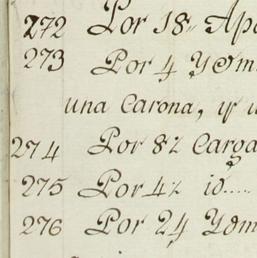 272 Por 18„ Apo
273 Por 4 Ydm
una Carona, y u
274 Por 82 Carga
275 Por 42 id.....
276 Por 24 Ydm